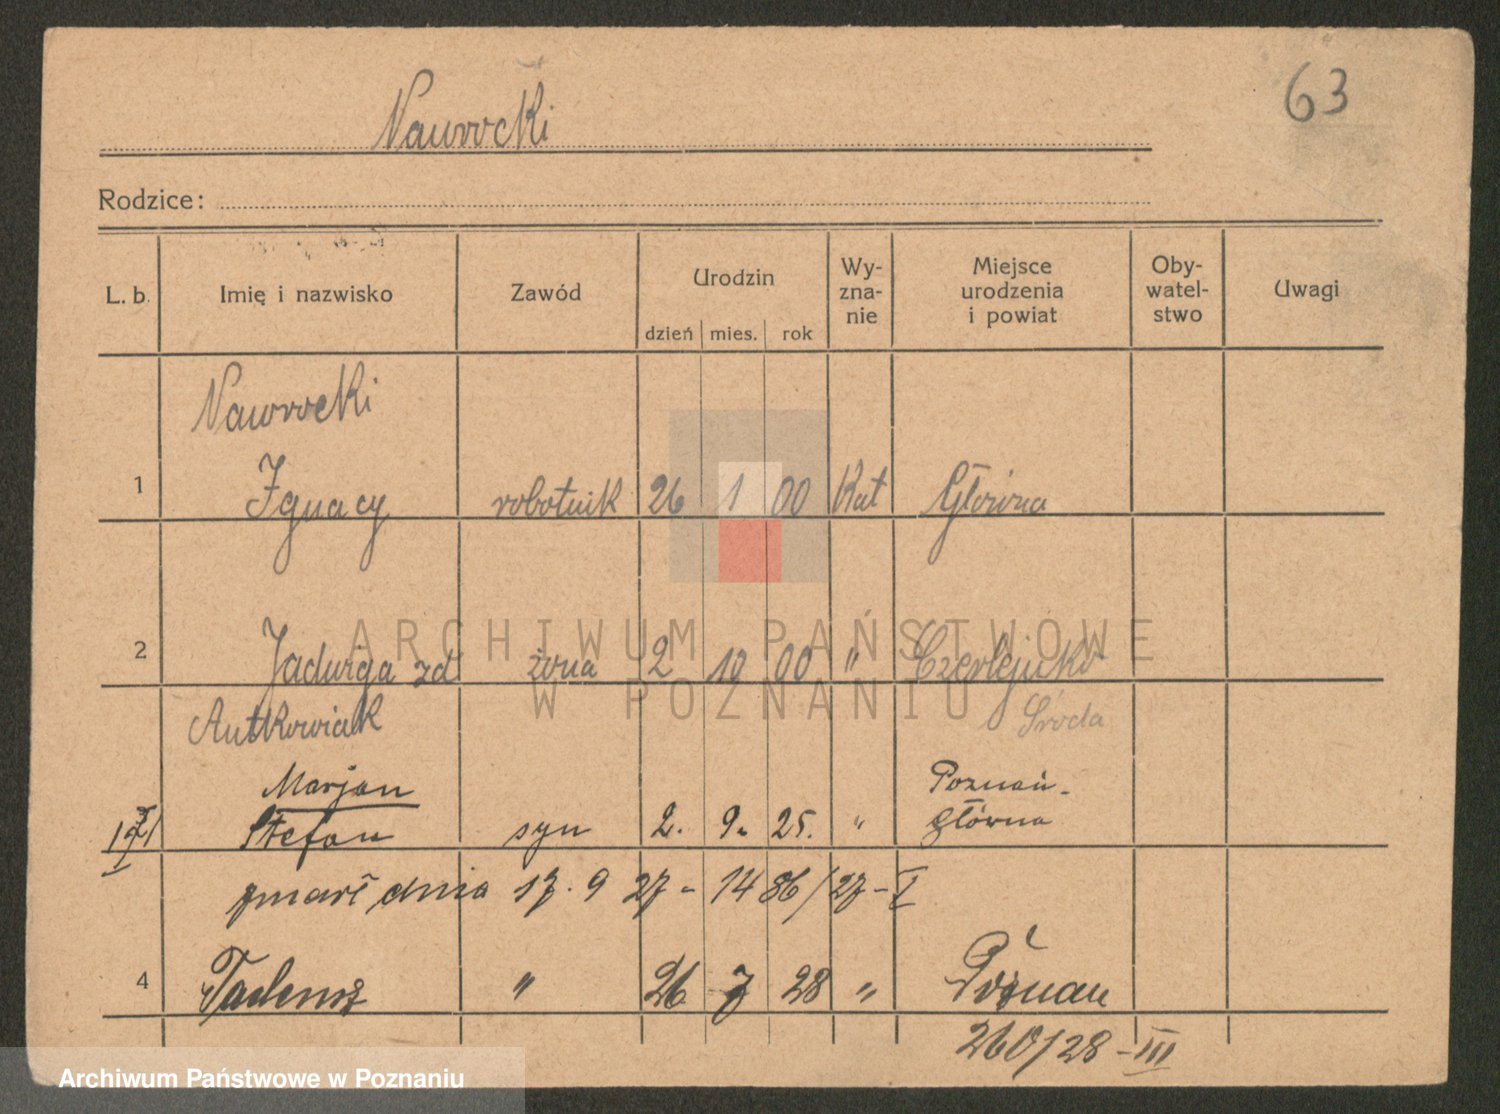 Nawrocki
63
Rodzice:
L. b. Imię i nazwisko Zawód Urodzin Wy- zna- nie Miejsce urodzenia i powiat Oby- watel- stwo Uwagi
dzień mies. rok
Nawrocki
1 Ignacy robotnik 26 1 00 Kat Główna
2 Jadwiga zd żona 2 10 00 " Czerlejnko
Antkowiak Środa
Marjan Poznań-
Stefan syn 2. 9. 25. " główna
zmarł dnia 17. 9 27 - 1486/27-I
4 Tadeusz " 26 7 28 " Poznań
260/28-III
ARCHIWUM PAŃSTWOWE
W POZNANIU
Archiwum Państwowe w Poznaniu